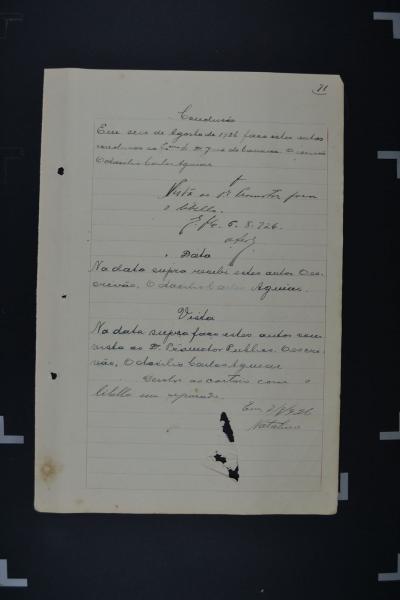 71
Conclusão
Em seis de Agosto de 1926 faço estes autos
conclusos ao Dr. Juiz de Comarca. O escrivão
Odasilio Carlos Aguiar
Vista ao Dr. Promotor para
o libello.
6.8.926.
Data
Na data supra recebi estes autos. O es-
crivão, Odasilio Carlos Aguiar.
Vista
Na data supra faço estes autos com
vista ao Dr. Promotor Publico. O escri-
vão, Odasilio Carlos Aguiar
Devolvo ao cartorio com o
libello em separado.
Em